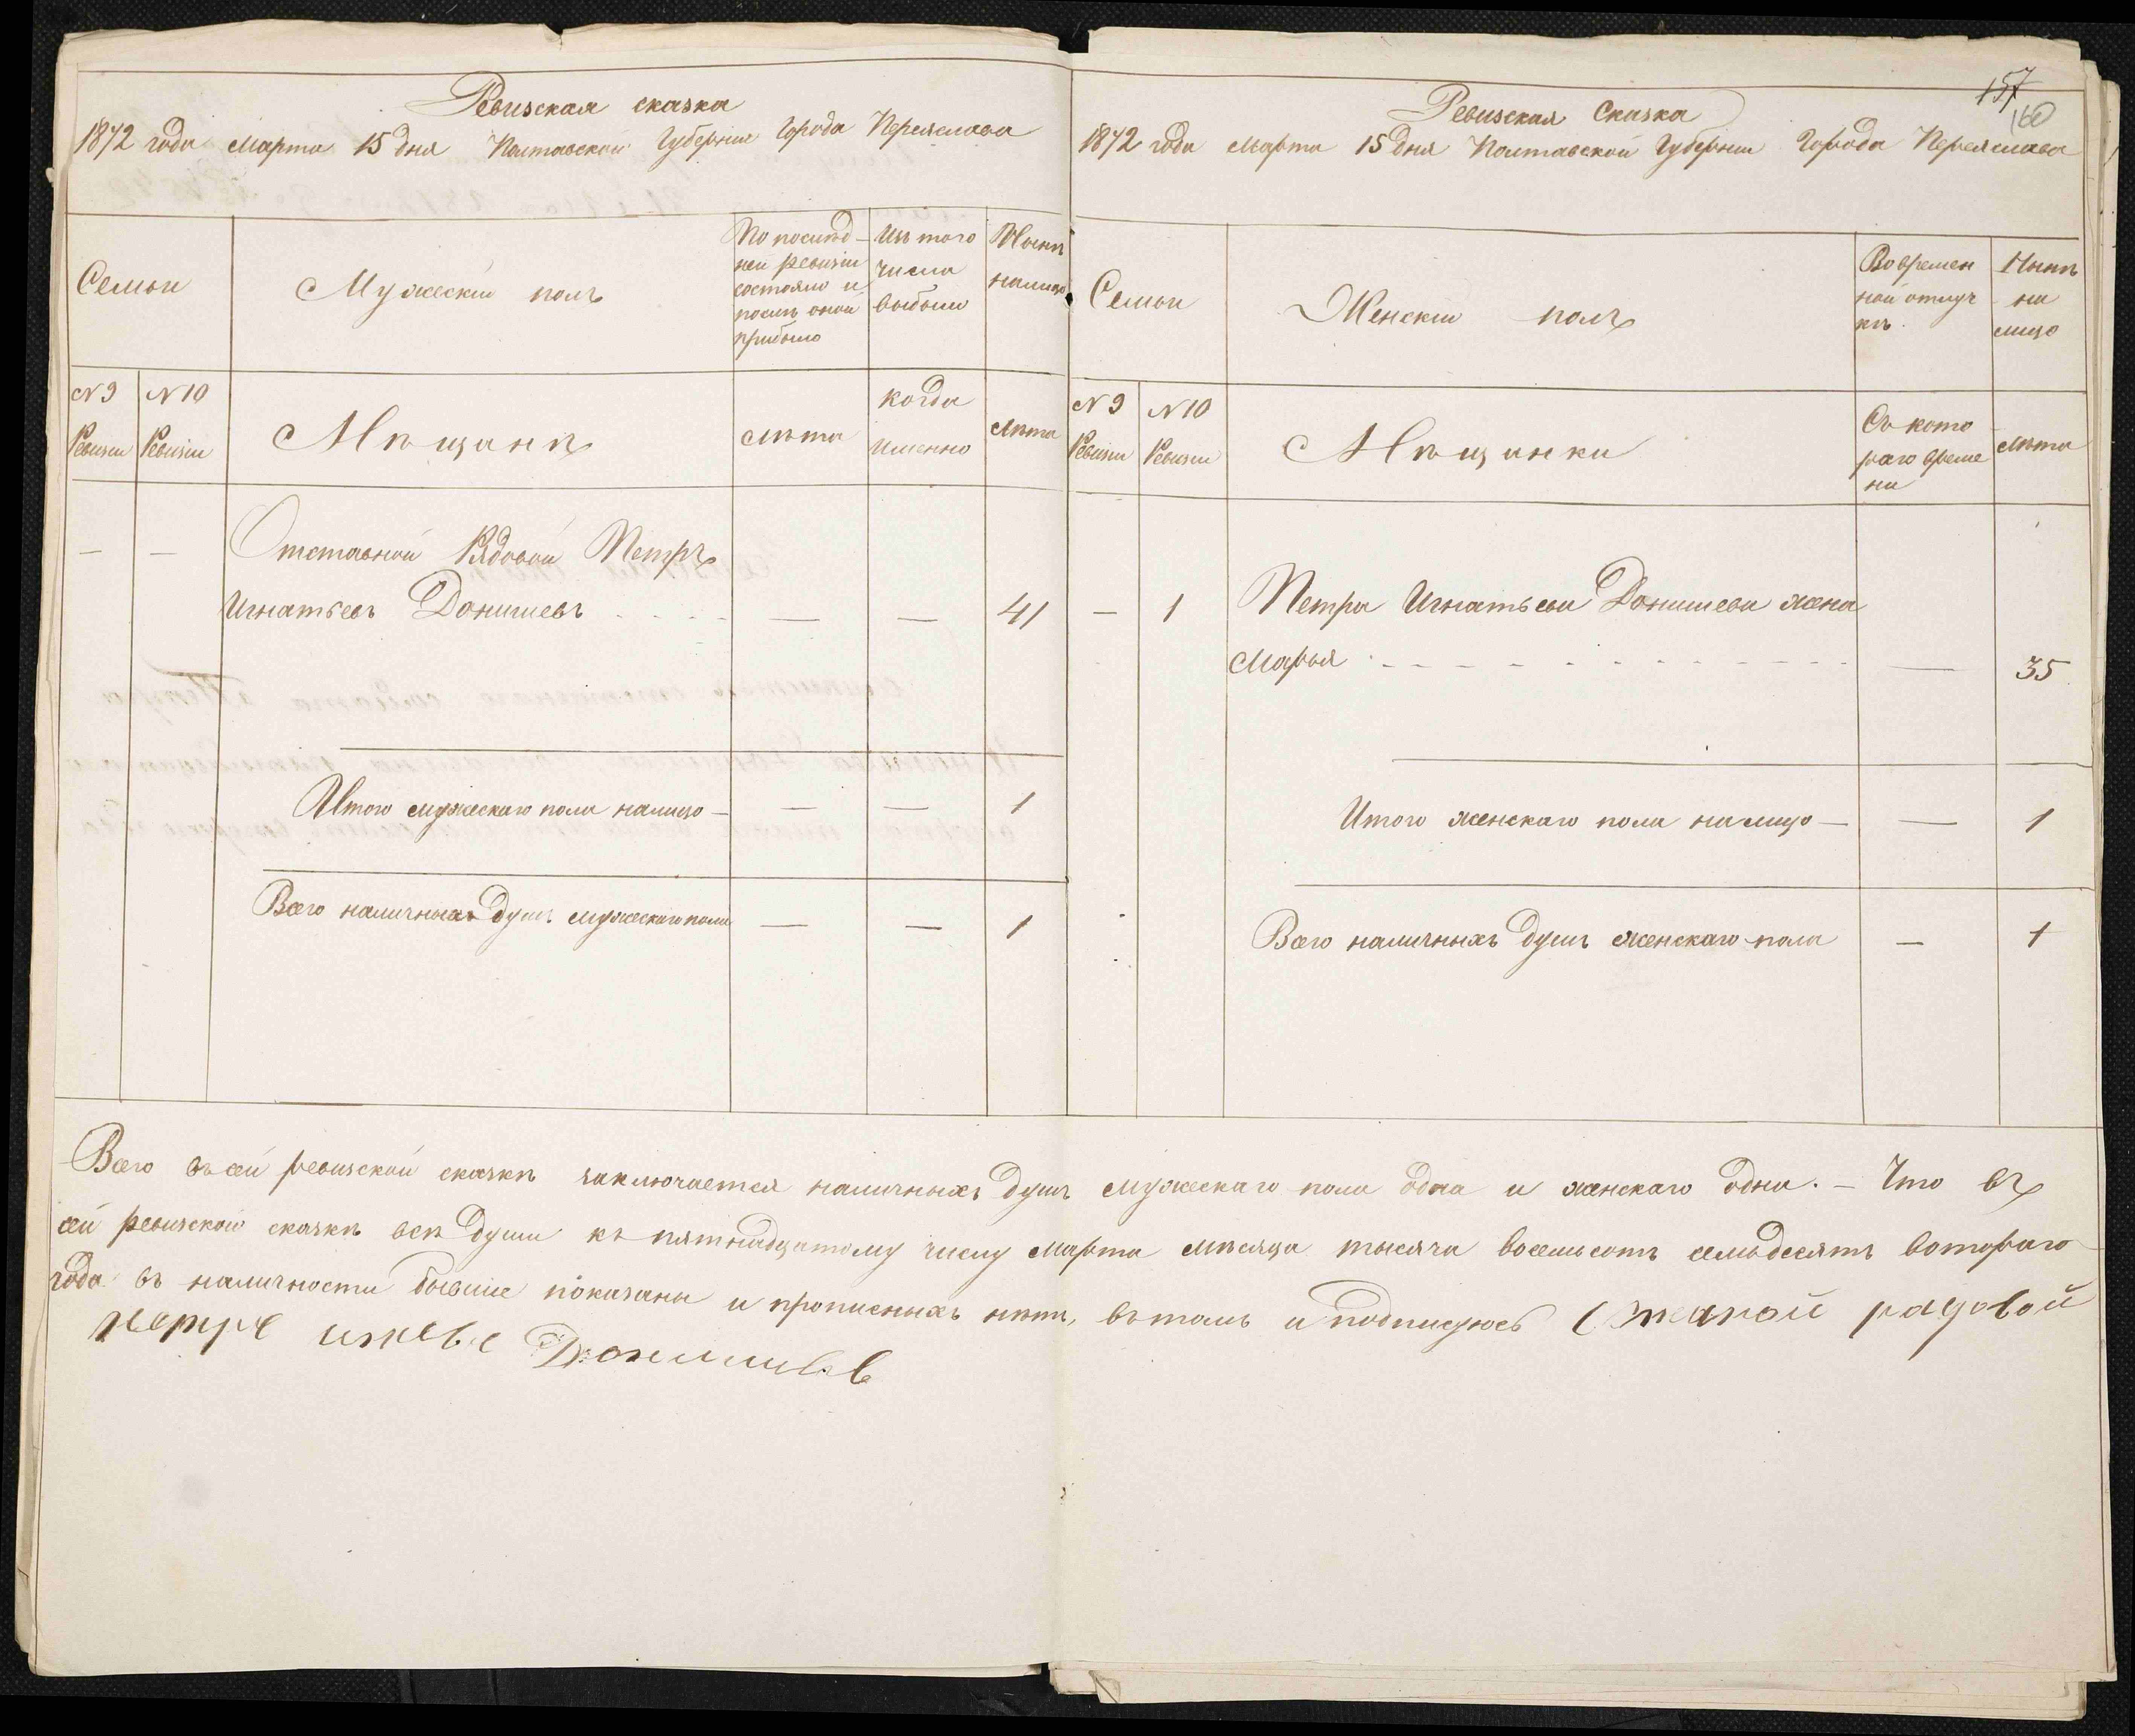 Ревизская сказка
1872 года Марта 15 дня Полтавской Губернии Города Переяслава
Семьи
Мужеский полъ
По послѣд-
ней ревизіи
состояло и
послѣ оной
прибыло
Изъ того
числа
выбыло
Нынѣ
налицо
№ 9
Ревизіи
№ 10
Ревизіи
Мѣщане
Лѣта
когда
именно
Лѣта
— — Отставной Рядовой Петръ
Игнатьевъ Донишевъ — — 41
Итого мужескаго пола налицо — — — 1
Всего наличныхъ душъ мужескаго пола — — 1
157
160
Ревизская Сказка
1872 года Марта 15 дня Полтавской Губернии Города Переяслава
Семьи
Женский полъ
Во времен
ной отлуч
кѣ
Нынѣ
на
лицо
№ 9
Ревизіи
№ 10
Ревизіи
Мѣщанки
Съ кото
раго време
ни
Лѣта
— 1 Петра Игнатьева Донишева жена
Марья — 35
Итого женскаго пола на лицо — — 1
Всего наличныхъ душъ женскаго пола — 1
Всего въ сей ревизской сказкѣ заключается наличныхъ душъ мужескаго пола одна и женскаго одна. — Что въ
сей ревизской сказкѣ всѣ души къ пятнадцатому числу Марта мѣсяца тысяча восемьсотъ семьдесятъ втораго
года въ наличности бывшие показаны и прописныхъ нѣтъ, въ томъ и подписуюсь рядовой
петръ Донишевъ